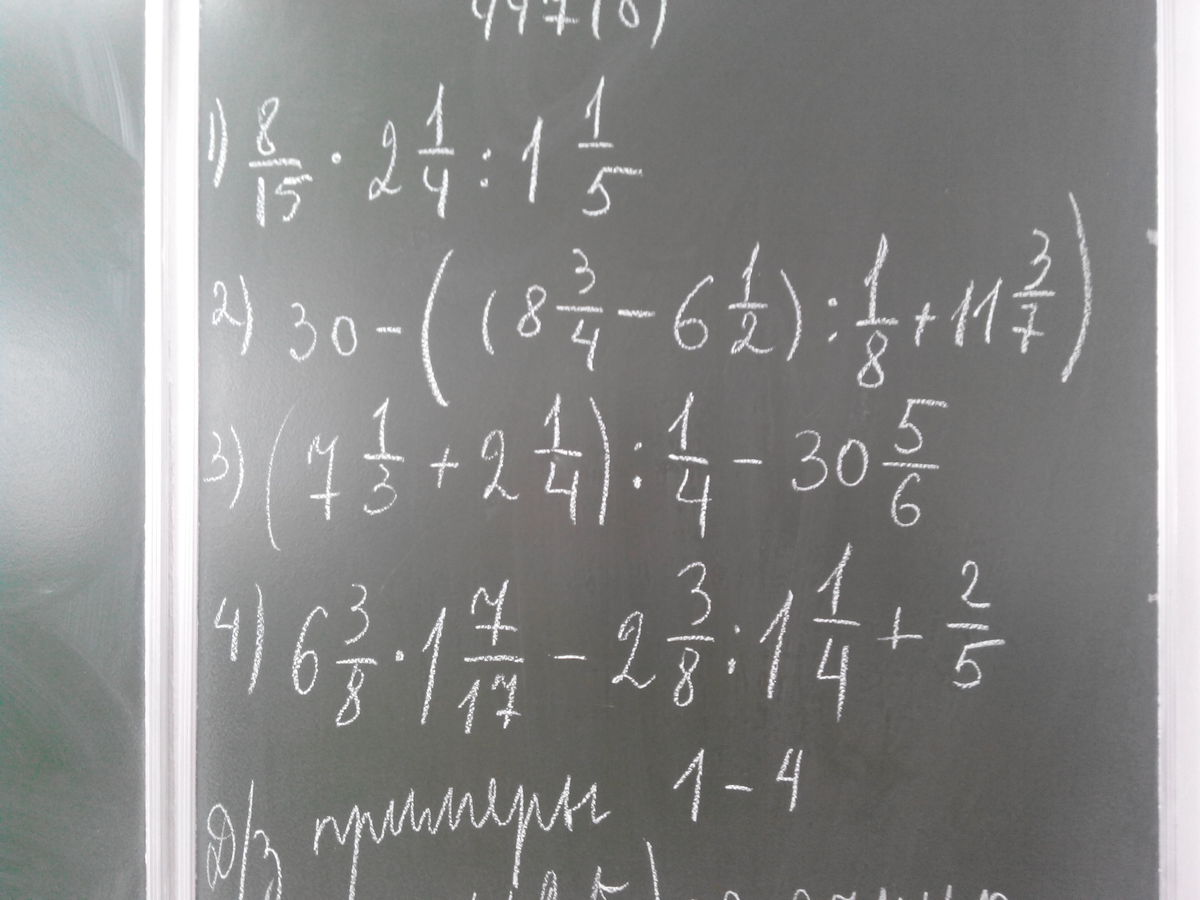 447(б)
1) 8/15 · 2 1/4 : 1 1/5
2) 30 - ((8 3/4 - 6 1/2) : 1/8 + 11 3/7)
3) (7 1/3 + 2 1/4) : 1/4 - 30 5/6
4) 6 3/8 · 1 7/17 - 2 3/8 : 1 1/4 + 2/5
Д/з примеры 1-4